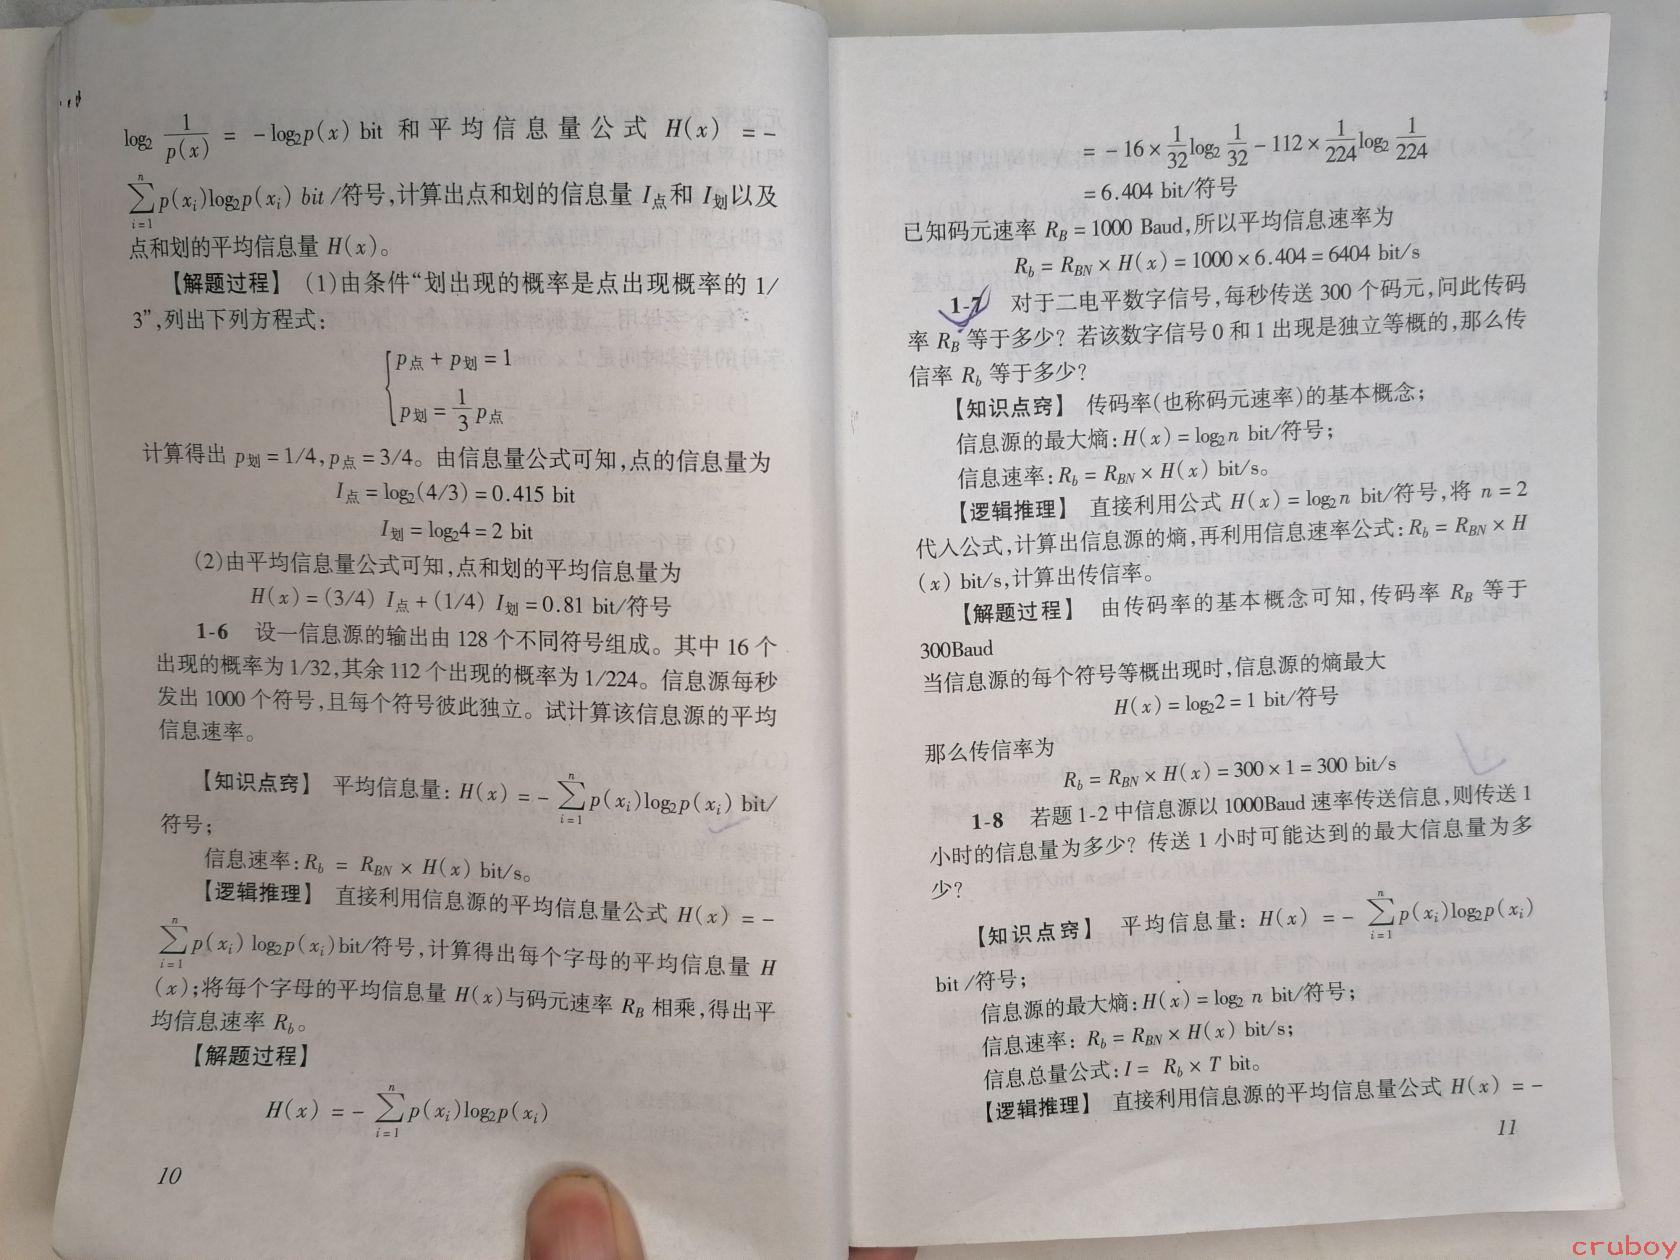 log₂ 1/p(x) = -log₂p(x) bit 和平均信息量公式 H(x) = -
∑ⁿᵢ₌₁p(xᵢ)log₂p(xᵢ) bit /符号,计算出点和划的信息量 I点和 I划以及
点和划的平均信息量 H(x)。
【解题过程】 (1)由条件“划出现的概率是点出现概率的 1/
3”,列出下列方程式:
p点 + p划 = 1
p划 = 1/3 p点
计算得出 p划 = 1/4, p点 = 3/4。由信息量公式可知,点的信息量为
I点 = log₂(4/3) = 0.415 bit
I划 = log₂4 = 2 bit
(2)由平均信息量公式可知,点和划的平均信息量为
H(x) = (3/4) I点 + (1/4) I划 = 0.81 bit/符号
1-6 设一信息源的输出由 128 个不同符号组成。其中 16 个
出现的概率为 1/32,其余 112 个出现的概率为 1/224。信息源每秒
发出 1000 个符号,且每个符号彼此独立。试计算该信息源的平均
信息速率。
【知识点窍】 平均信息量: H(x) = - ∑ⁿᵢ₌₁p(xᵢ)log₂p(xᵢ) bit/
符号;
信息速率: R_b = R_BN × H(x) bit/s。
【逻辑推理】 直接利用信息源的平均信息量公式 H(x) = -
∑ⁿᵢ₌₁p(xᵢ) log₂p(xᵢ)bit/符号,计算得出每个字母的平均信息量 H
(x);将每个字母的平均信息量 H(x)与码元速率 R_B 相乘,得出平
均信息速率 R_b。
【解题过程】
H(x) = - ∑ⁿᵢ₌₁p(xᵢ)log₂p(xᵢ)
10
= - 16 × 1/32 log₂ 1/32 - 112 × 1/224 log₂ 1/224
= 6.404 bit/符号
已知码元速率 R_B = 1000 Baud,所以平均信息速率为
R_b = R_BN × H(x) = 1000 × 6.404 = 6404 bit/s
1-7 对于二电平数字信号,每秒传送 300 个码元,问此传码
率 R_B 等于多少? 若该数字信号 0 和 1 出现是独立等概的,那么传
信率 R_b 等于多少?
【知识点窍】 传码率(也称码元速率)的基本概念;
信息源的最大熵: H(x) = log₂n bit/符号;
信息速率: R_b = R_BN × H(x) bit/s。
【逻辑推理】 直接利用公式 H(x) = log₂n bit/符号,将 n = 2
代入公式,计算出信息源的熵,再利用信息速率公式: R_b = R_BN × H
(x) bit/s,计算出传信率。
【解题过程】 由传码率的基本概念可知,传码率 R_B 等于
300Baud
当信息源的每个符号等概出现时,信息源的熵最大
H(x) = log₂2 = 1 bit/符号
那么传信率为
R_b = R_BN × H(x) = 300 × 1 = 300 bit/s
1-8 若题 1-2 中信息源以 1000Baud 速率传送信息,则传送 1
小时的信息量为多少? 传送 1 小时可能达到的最大信息量为多
少?
【知识点窍】 平均信息量: H(x) = - ∑ⁿᵢ₌₁p(xᵢ)log₂p(xᵢ)
bit /符号;
信息源的最大熵: H(x) = log₂ n bit/符号;
信息速率: R_b = R_BN × H(x) bit/s;
信息总量公式: I = R_b × T bit。
【逻辑推理】 直接利用信息源的平均信息量公式 H(x) = -
11
cruboy